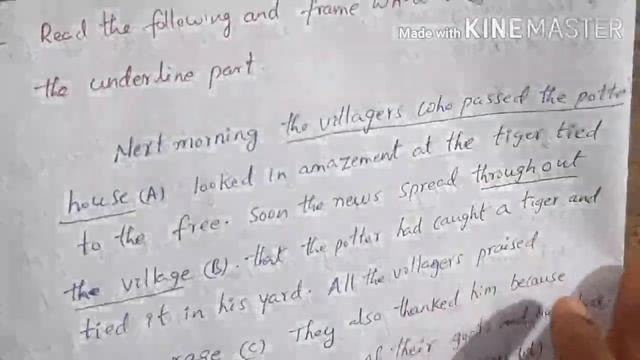 Made with KINEMASTER
Read the following and frame
the underline part.
Next morning the villagers who passed the potter
house (A) looked in amazement at the tiger tied
to the free. Soon the news spread throughout
the village (B). that the potter had caught a tiger and
tied it in his yard. All the villagers praised
(C) They also thanked him because
of their goats and